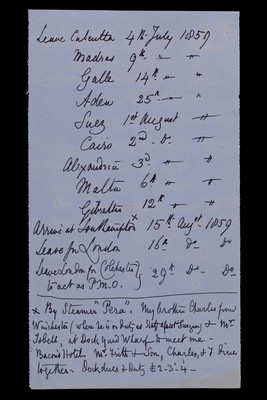 Leave Calcutta 4th July 1859
Madras 9th " "
Galle 14th " "
Aden 25th " "
Suez 1st August "
Cairo 2nd Do "
Alexandria 3d " "
Malta 6th " "
Gibraltar 12th " "
Arrive at Southampton x 15th Augst 1859
Leave for London 16th do do
Leave London for (Colchester) to act as P.M.O. } 29th do do
x By Steamer "Pera". My brother Charles from
Winchester (where he is on duty as Staff Asst Surgeon) & Mr
Tobell, at Dock yard Wharf to meet me -
Bacon's Hotel. Mr. Frith & Son, Charles, & I Dine
together. Dock dues & Duty £2-3-4-